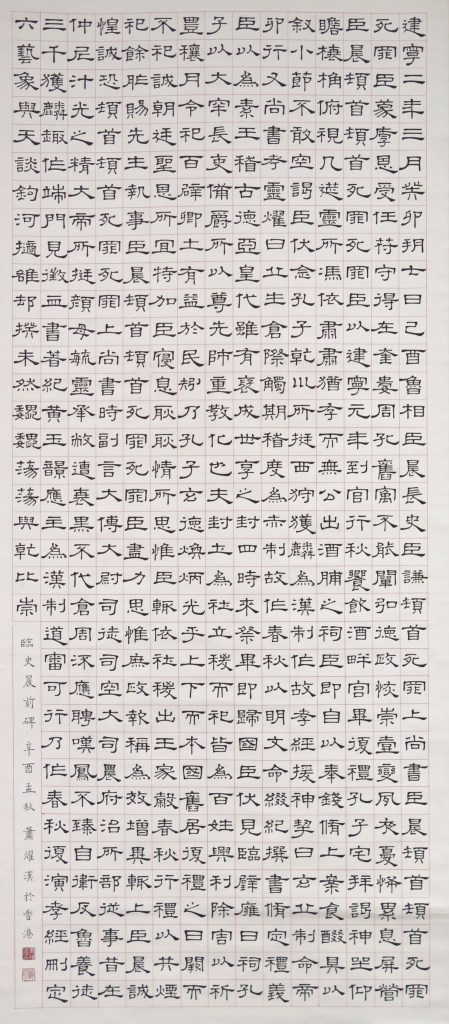 建寧二年三月癸卯朔七日己酉魯相臣晨長史臣謙頓首死罪上尚書臣晨頓首頓首死罪
死罪臣蒙厚恩受任符守得在奎婁周孔舊寓不能闡弘德政恢崇壹變夙夜憂怖累息屏營
臣晨頓首頓首死罪死罪臣以建寧元年到官行秋饗飲酒畔宮畢復禮孔子宅拜謁神坐仰
瞻榱桷俯視几筵靈所馮依肅肅猶存而無公出酒脯之祠臣即自以奉錢脩上案食醊具以
敘小節不敢空謁臣伏念孔子乾川所挺西狩獲麟為漢制作故孝經援神挈曰玄丘制命帝
卯行又尚書考靈燿曰丘生倉際觸期稽度為赤制故作春秋以明文命綴紀撰書脩定禮義
臣以為素王稽古德亞皇代雖有褒成世享之封四時來祭畢即歸國臣伏見臨璧雍日祠孔
子以大牢長吏備爵所以尊先師重教化也夫封土為社立稷而祀皆為百姓興利除害以祈
豐穰月令祀百辟卿士有益於民矧乃孔子玄德煥炳光于上下而本國舊居復禮之日闕而
不祀誠朝廷聖恩所宜特加臣寑息耿耿情所思惟臣輒依社稷出王家穀春秋行禮以共煙
祀餘胙賜先生執事臣晨頓首頓首死罪死罪臣盡力思惟庶政報稱為效增異輒上臣晨誠
惶誠恐頓首頓首死罪死罪上尚書時副言大傅大尉司徒司空大司農府治所部從事昔在
仲尼汁光之精大帝所挺顏母毓靈承敝遭衰黑不代倉周流應聘嘆鳳不臻自衛反魯養徒
三千獲麟趣作端門見徵血書著紀黃玉韻應主為漢制道審可行乃作春秋復演孝經刪定
六藝象與天談鉤河擿雒却揆未然魏魏蕩蕩與乾比崇
臨史晨前碑 辛酉孟秋 蕭燿漢於香港